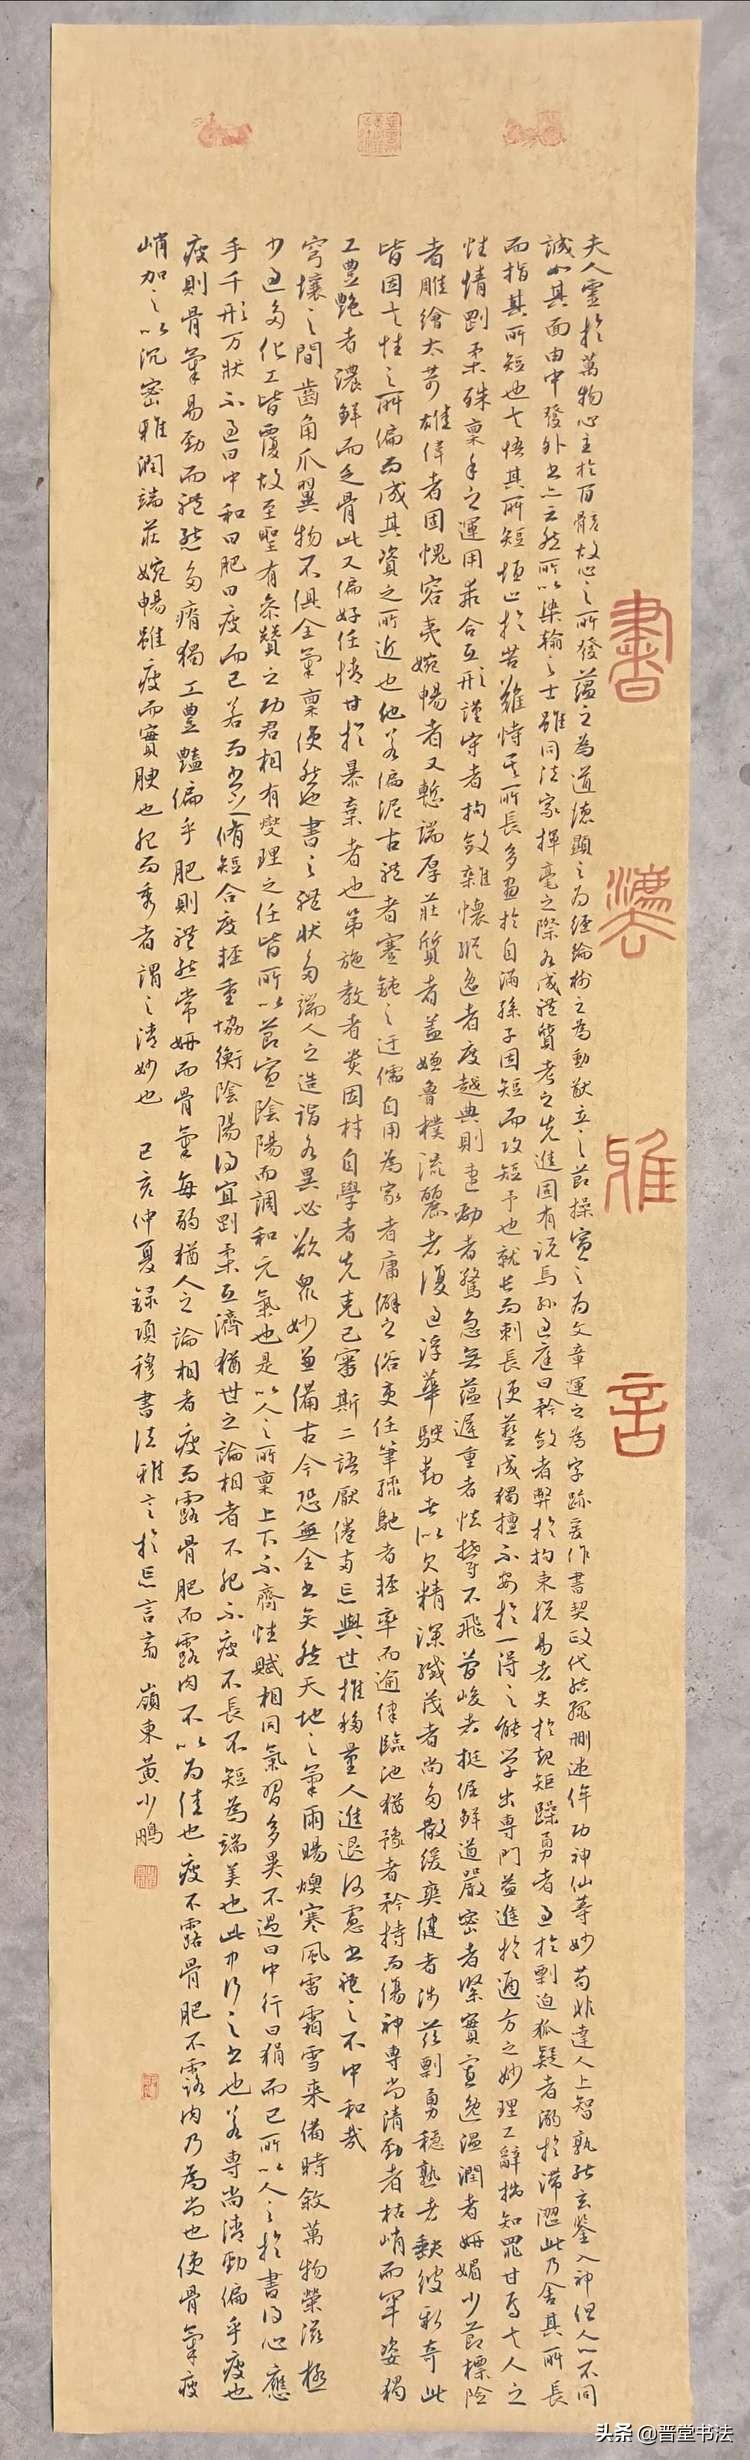 書灋雅言
夫人靈於萬物心主於百骸故心之所發蘊之為道德顯之為經綸樹之為勳猷立之節操宣之為文章運之為字跡爰作書契政代結繩刪述侔功神仙等妙苟非達人上智孰能玄鑒入神但人心不同
誠如其面由中發外書亦云然所以染翰之士雖同法家揮毫之際各成體質考之先進固有說焉孫過庭曰矜斂者弊於拘束脫易者失於規矩躁勇者過於剽迫狐疑者溺於滯澀此乃舍其所長
而指其所短也夫悟其所短恆止於苦難恃其所長多畫於自滿孫子因短而攻短予也就長而刺長使藝成獨擅不安於一得之能学出專門益進於通方之妙理工辭拙知罪甘焉夫人之
性情剛柔殊稟手之運用乖合互形謹守者拘斂雜懷縱逸者度越典則速勁者驚急無蘊遲重者怯鬱不飛簡峻者挺倔鮮遒嚴密者緊實寡逸溫潤者妍媚少節標險
者雕繪太苛雄偉者固愧容夷婉暢者又慚端厚莊質者蓋嫌魯樸流麗者復過浮華駛動者似欠精深纖茂者尚多散緩爽健者涉茲剽勇穩熟者缺彼新奇此
皆因夫性之所偏而成其資之所近也他若偏泥古體者蹇鈍之迂儒自用為家者庸僻之俗吏任筆驟馳者輕率而逾律臨池猶豫者矜持而傷神專尚清勁者枯峭而罕姿獨
工豐艷者濃鮮而乏骨此又偏好任情甘於暴棄者也第施教者貴因材自學者先克己審斯二語厭倦兩忘與世推移量人進退何慮書體之不中和哉
穹壤之間齒角爪翼物不俱全氣稟使然也書之體狀多端人之造詣各異必欲眾妙兼備古今恐無全書矣然天地之氣雨暘燠寒風雷霜雪來備時敘萬物榮滋極
少過多化工皆覆故至聖有參贊之功君相有燮理之任皆所以節宣陰陽而調和元氣也是以人之所稟上下不齊性賦相同氣習多異不過曰中行曰狷而已所以人之於書得心應
手千形万狀不過曰中和曰肥曰瘦而已若而書也脩短合度輕重協衡陰陽得宜剛柔互濟猶世之論相者不肥不瘦不長不短為端美也此中行之書也若專尚清勁偏乎瘦也
瘦則骨氣易勁而體態多瘠獨工豐豔偏乎肥則體態常妍而骨氣每弱猶人之論相者瘦而露骨肥而露肉不以為佳也瘦不露骨肥不露肉乃為尚也使骨氣瘦
峭加之以沉密雅潤端莊婉暢雖瘦而實腴也肥而秀者謂之清妙也 己亥仲夏録項穆書法雅言於忘言齋 嶺東黃少鵬
头条 @晋堂书法